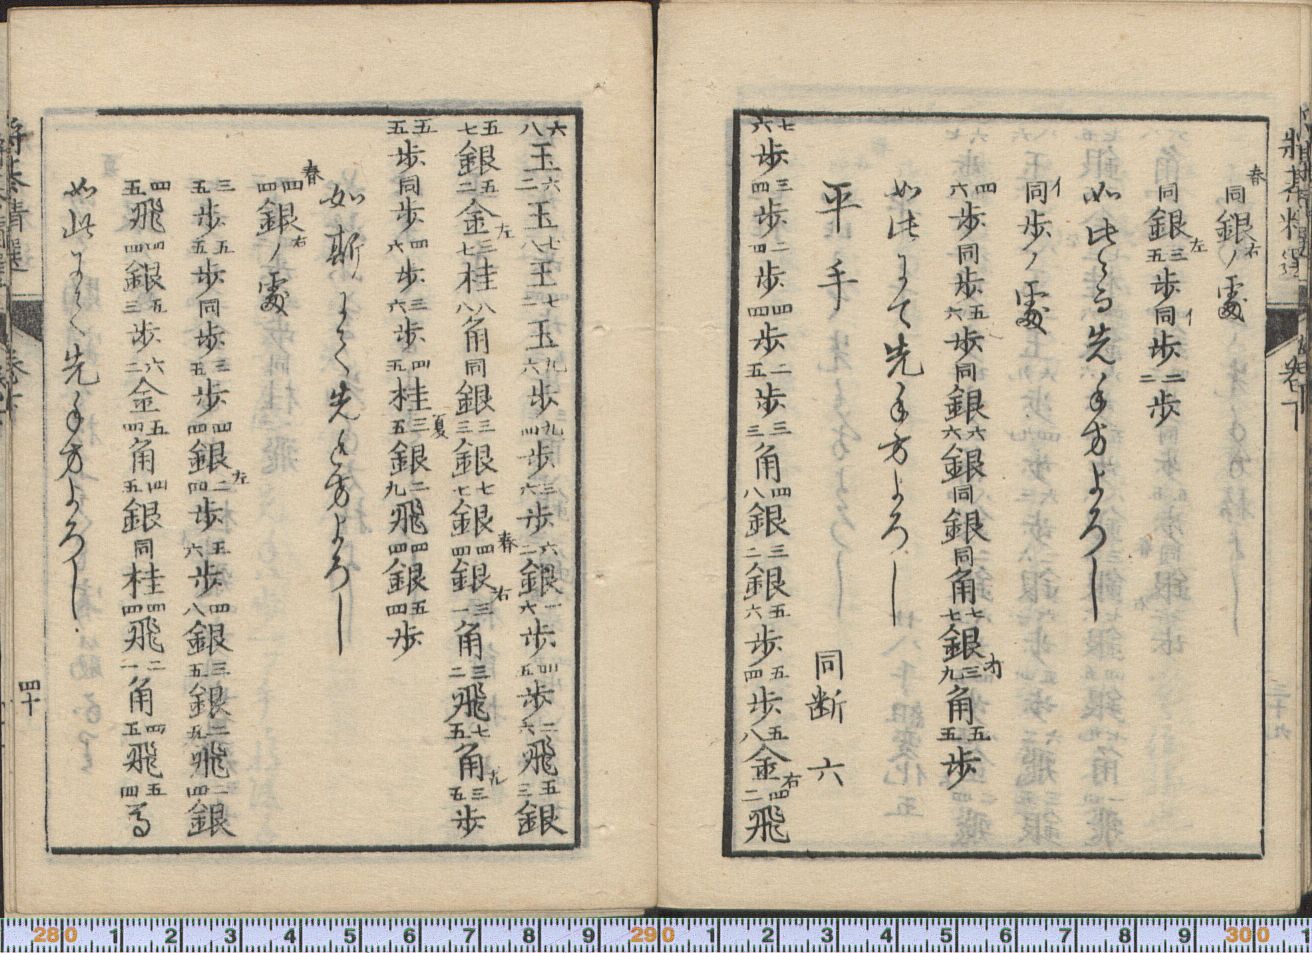 將棊精選 巻下
春 同銀右ノ處
同銀左三五歩同歩イ二二歩
如此くる先手方よろし
同歩イノ處
四六歩同歩五六歩同銀六六銀同銀同角七七銀三九角五五歩
如此にて先手方よろし
平手 同断 六
七六歩三四歩二四歩四四歩二五歩三三角四八銀三二銀五六歩五四歩五八金右四二飛
六八玉六二玉七八玉七二玉九六歩九四歩三六歩六二銀一六歩四五歩二六飛五三銀
五七銀五二金左三七桂八八角同銀三三銀七七銀春四四銀右三一角三二飛七五角成三五歩
五五歩同歩四六歩三六歩四五桂夏三五銀二九飛四四銀五四歩
如斯にて先手方よろし
春 四四銀右ノ處
三五歩五五歩同歩三五歩四四銀左二四歩五六歩四八銀三五銀二九飛二四銀
四五飛四四銀五三歩六二金五四角四五銀同桂四四飛二一角四五飛五四馬
如此にて先手方よろし
四十